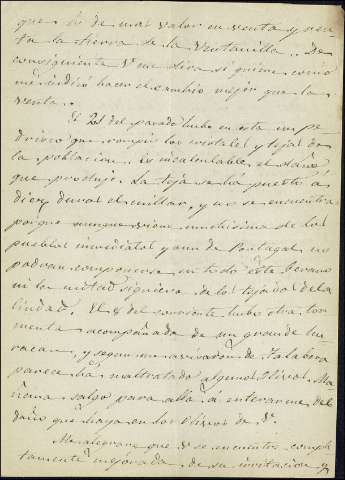 que es de mas valor en venta y ren
ta la tierra de la Ventanilla. De
consiguiente V. me dira si quiere como
me indicó hacer el cambio mejor que la
venta.
El 21 del pasado hubo en esta un pe
drisco que rompió los cristales y tejas de
la poblacion. Es incalculable el daño
que produjo. La teja se há puesto á
diez duros el millar, y no se encuentra
porque aunque viene muchisima de los
pueblos inmediatos y aun de Portugal no
podran componerse en todo este berano
ni la mitad siquiera de los tejados de la
Ciudad. El 8 del corriente hubo otra tor
menta acompañada de un grande hu
racan, y segun me avisaron de Talabera
parece há maltratado algunos Olivos. Ma
ñana salgo para alla á enterarme del
daño que haya en los Olivos de V.
Me alegrare que V. se encuentre comple
tamente mejorada de su